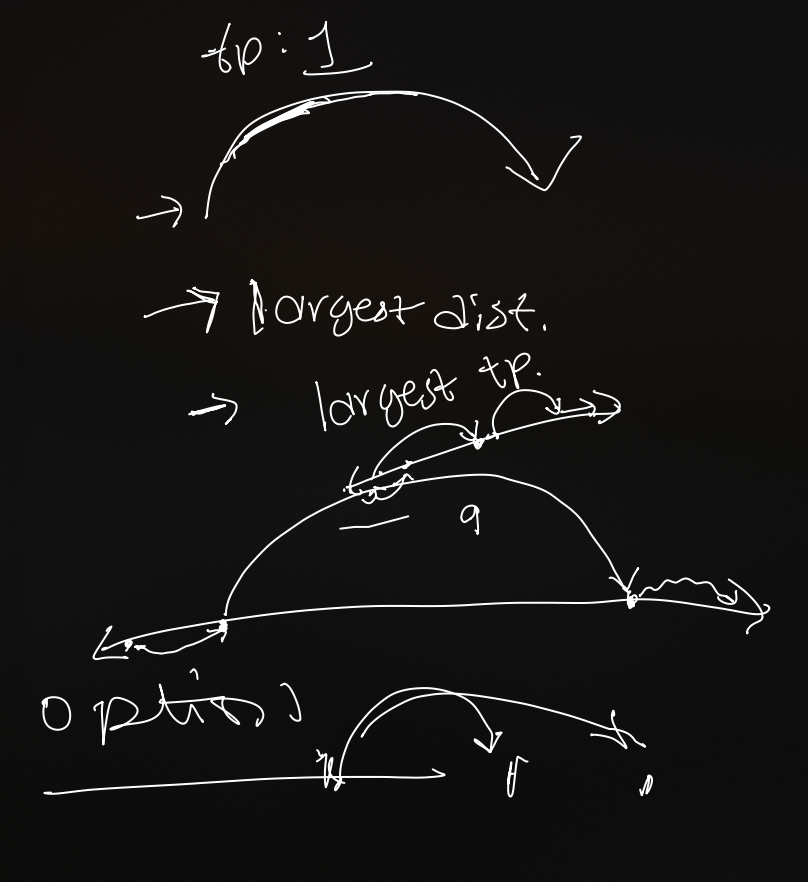 tp: 1
→ largest dist.
→ largest tp.
9
options